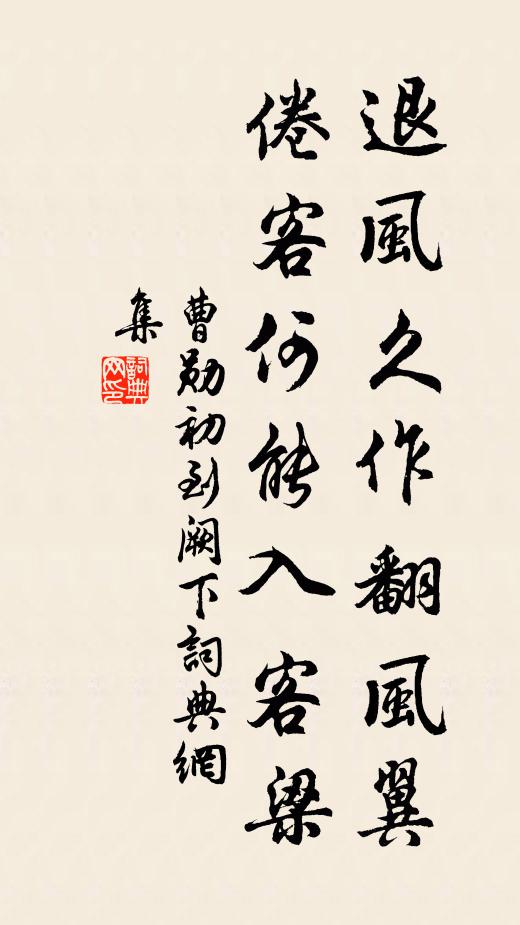 退風久作翻風翼
倦客何能入客梁
曹勛初到闕下詞典網
集
詞典
网印